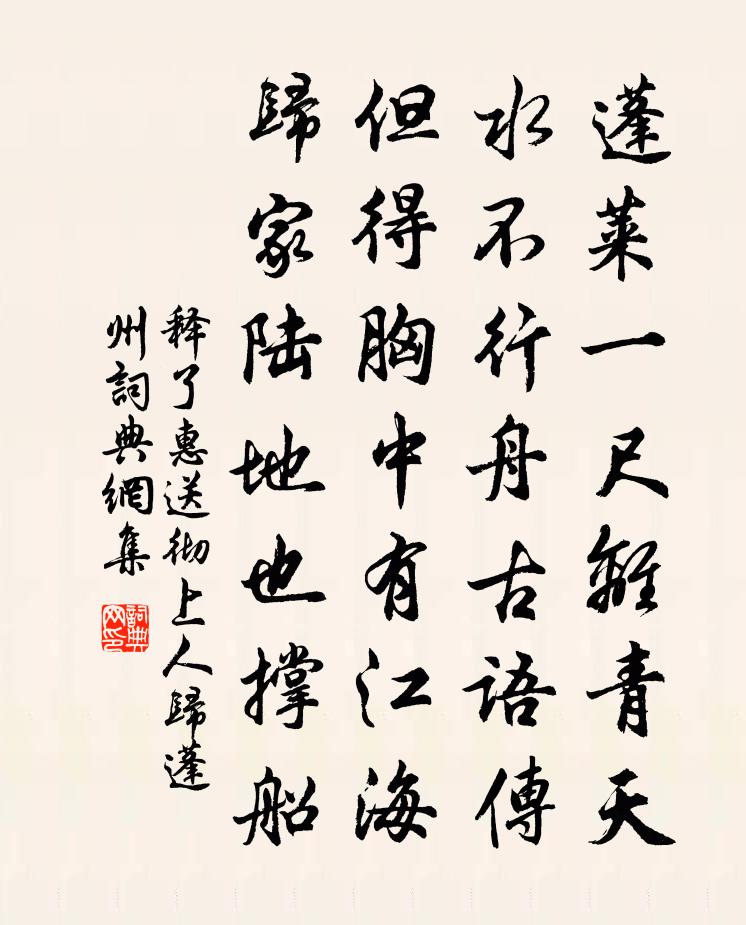 蓬莱一尺離青天
水不行舟古語傳
但得胸中有江海
歸家陆地也撑船
释了惠送彻上人歸蓬
州詞典網集
詞典网印